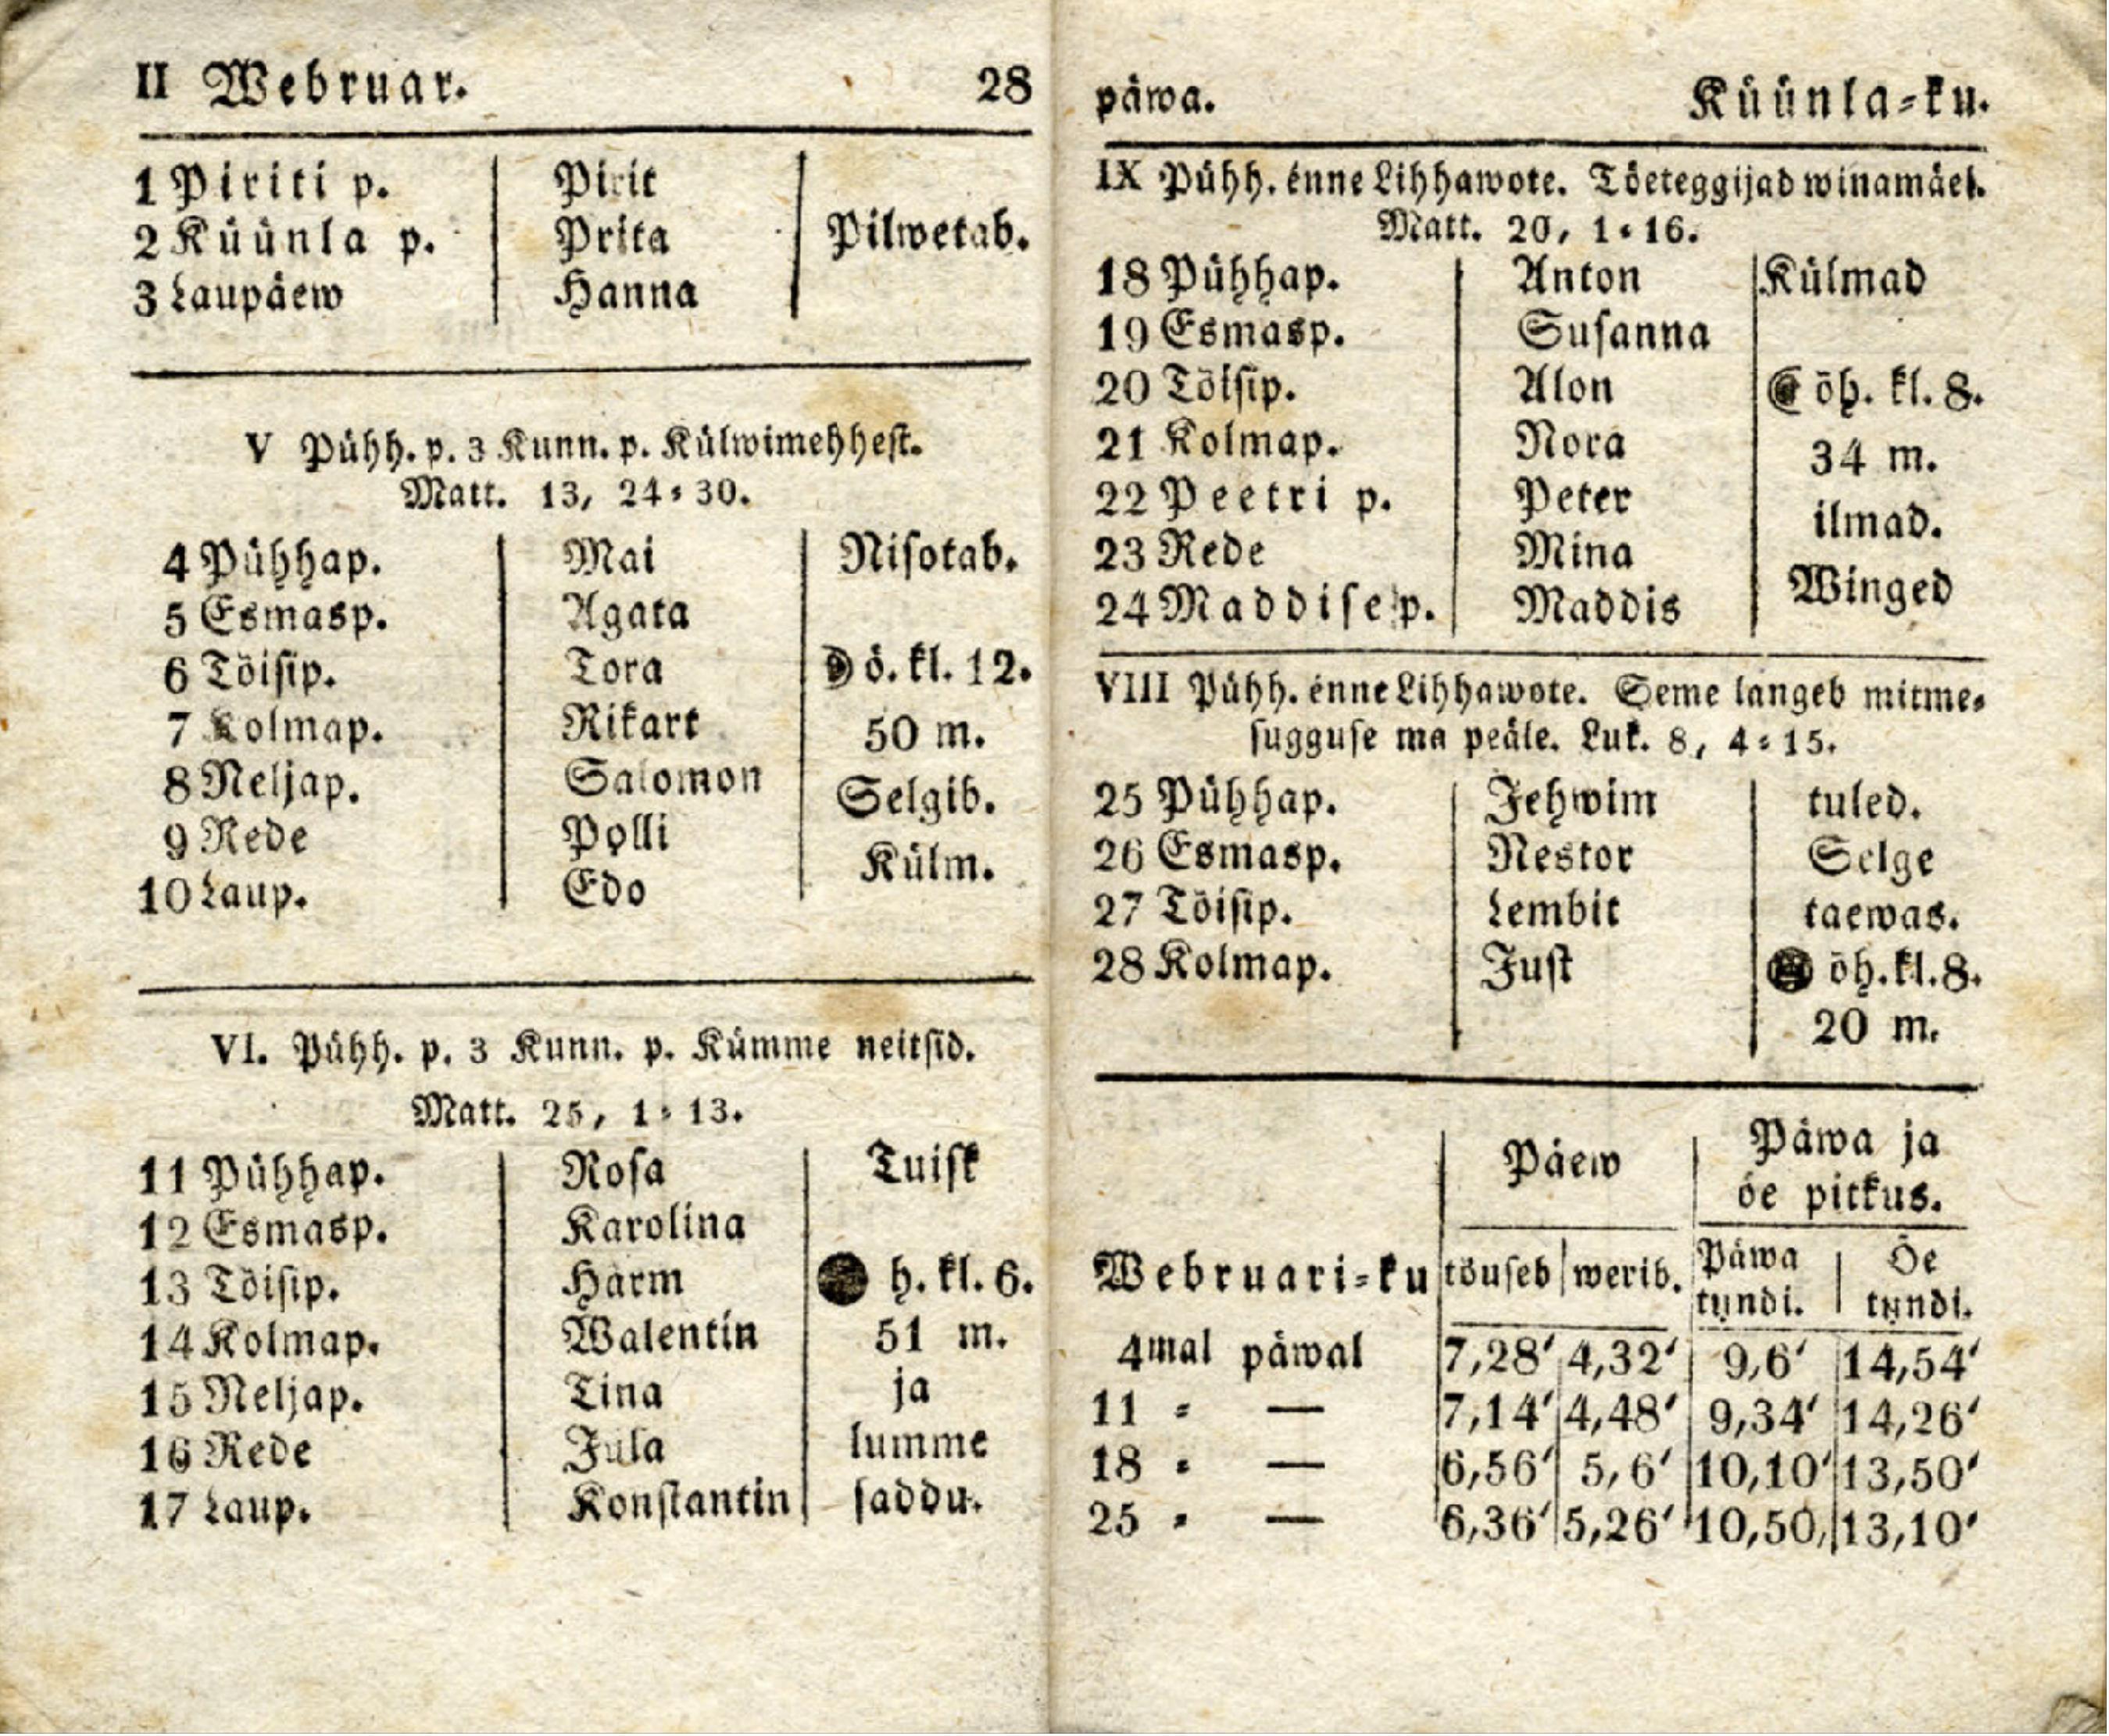 II Webruar. 28
1 Piriti p. Pirit
2 Küünla p. Prita Pilwetab.
3 Laupäew Hanna
V Pühh. p. 3 Kunn. p. Külwimehhest.
Matt. 13, 24-30.
4 Pühhap. Mai Nisotab.
5 Esmasp. Agata
6 Töisip. Tora ☽ ö. kl. 12.
7 Kolmap. Rikart 50 m.
8 Neljap. Salomon Selgib.
9 Rede Polli Külm.
10 Laup. Edo
VI. Pühh. p. 3 Kunn. p. Kümme neitsid.
Matt. 25, 1-13.
11 Pühhap. Rosa Tuisk
12 Esmasp. Karolina
13 Töisip. Harm h. kl. 6.
14 Kolmap. Walentin 51 m.
15 Neljap. Tina ja
16 Rede Jula lumme
17 Laup. Konstantin saddu.
päwa. Küünla-ku.
IX Pühh. enne Lihhawote. Töeteggijad winamäel.
Matt. 20, 1-16.
18 Pühhap. Anton Külmad
19 Esmasp. Susanna
20 Töisip. Alon ☾ öh. kl. 8.
21 Kolmap. Nora 34 m.
22 Peetri p. Peter ilmad.
23 Rede Mina
24 Maddise p. Maddis Winged
VIII Pühh. enne Lihhawote. Seme langeb mitme-
sugguse ma peäle. Luk. 8, 4-15.
25 Pühhap. Jehwim tuled.
26 Esmasp. Nestor Selge
27 Töisip. Lembit taewas.
28 Kolmap. Just öh. kl. 8.
20 m.
Päew Päwa ja
öe pitkus.
Webruari-ku töuseb werib. Päwa tundi. Öe tundi.
4mal päwal 7,28' 4,32' 9,6' 14,54'
11 - — 7,14' 4,48' 9,34' 14,26'
18 - — 6,56' 5,6' 10,10' 13,50'
25 - — 6,36' 5,26' 10,50, 13,10'